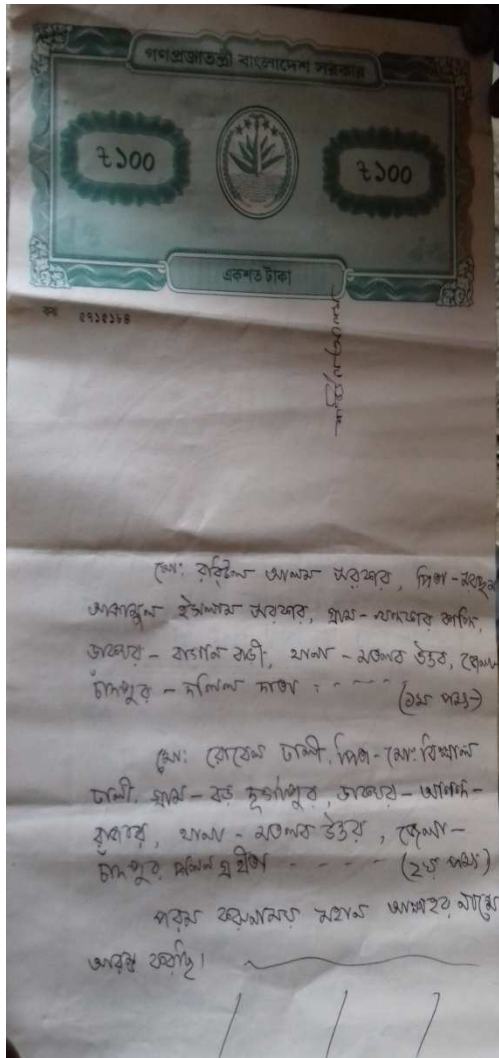 গণপ্রজাতন্ত্রী বাংলাদেশ সরকার
৳১০০
৳১০০
একশত টাকা
কম ৫৭১৫১৮৪
মো: রবিউল আলম সরকার, পিতা-মরহুম
ইসলাম সরকার, গ্রাম-
ডাকঘর - বাগান বাড়ী, থানা - মতলব উত্তর, জেলা
চাঁদপুর - দলিল দাতা : - - - - (১ম পক্ষ)
মো: রোবেল ঢালী, পিতা-মো: বিল্লাল
ঢালী, গ্রাম - বড় দূর্গাপুর, ডাকঘর - আনন্দ-
বাজার, থানা - মতলব উত্তর, জেলা -
চাঁদপুর, দলিল গ্রহীতা - - - - (২য় পক্ষ)
পরম করুনাময় মহান আল্লাহর নামে
আরম্ভ করছি।